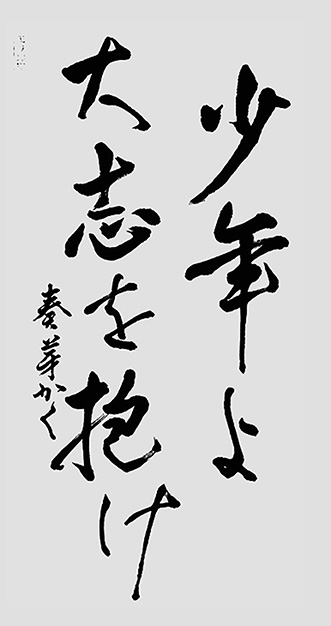 少年よ
大志を抱け
奏芽かく